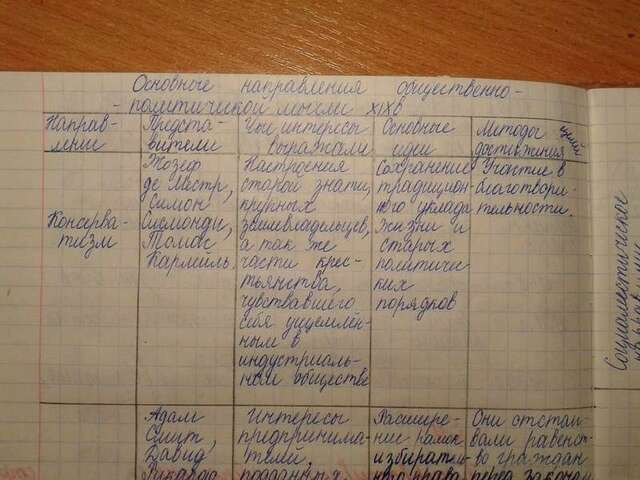 Основные направления общественно-
- политической мысли XIXв
Направ-
ление
Предста-
вители
Чьи интересы
выражали
Основные
идеи
Методы
достижения
цели
Консерва-
тизм
Жозеф
де Местр,
Симон
Сисмонди,
Томас
Карлейль.
Настроения
старой знати,
крупных
землевладельцев,
а так же
части крес-
тьянства,
чувствавшего
себя ущемлён-
ным в
индустриаль-
ном обществе
Сохранение
традицион-
ного уклада
жизни и
старых
политичи
ких
порядков
Участие в
благотвори-
тельности.
Адам
Смит,
Давид
Рикардо
Интересы
предпринима-
телей,
Расшире-
ние рамок
избирател-
ного права
Они отстаи-
вали равенст-
во граждан
перед законом
Социалистическое